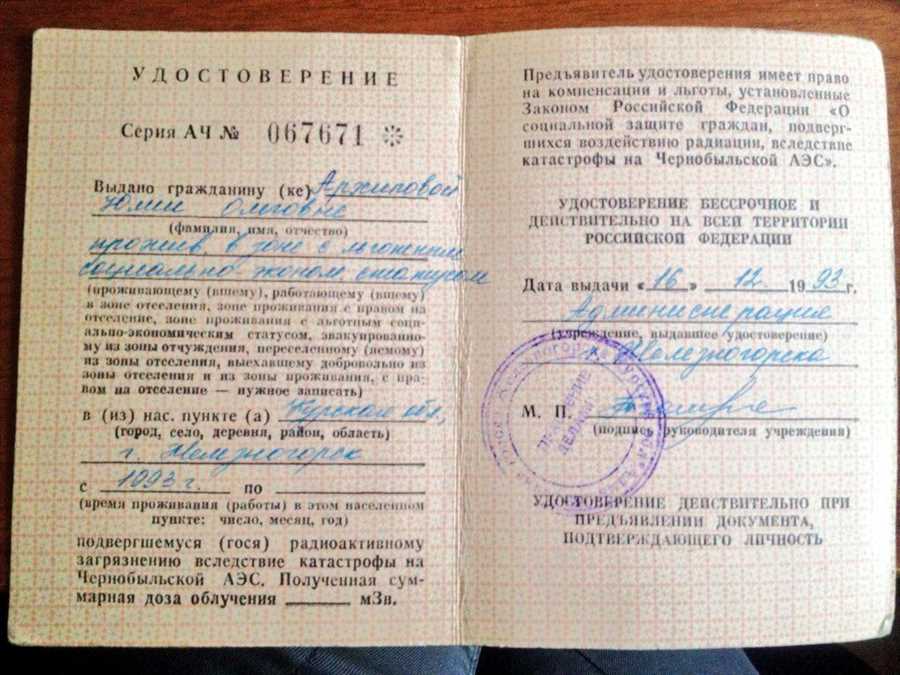 УДОСТОВЕРЕНИЕ
Серия АЧ № 067671
Выдано гражданину (ке) Архиповой
Юлии Олеговне
(фамилия, имя, отчество)
прожив. в зоне с льготным
социально-эконом. статусом
(проживающему (вшему), работающему (вшему)
в зоне отселения, зоне проживания с правом на
отселение, зоне проживания с льготным соци-
ально-экономическим статусом, эвакуированно-
му из зоны отчуждения, переселенному (яемому)
из зоны отселения, выехавшему добровольно из
зоны отселения и из зоны проживания, с пра-
вом на отселение — нужное записать)
в (из) нас. пункте (а) Курская обл,
(город, село, деревня, район, область)
г. Железногорск
с 1993 г. по
(время проживания (работы) в этом населенном
пункте: число, месяц, год)
подвергшемуся (гося) радиоактивному
загрязнению вследствие катастрофы на
Чернобыльской АЭС. Полученная сум-
марная доза облучения ______ мЗв.
Предъявитель удостоверения имеет право
на компенсации и льготы, установленные
Законом Российской Федерации «О
социальной защите граждан, подверг-
шихся воздействию радиации, вследствие
катастрофы на Чернобыльской АЭС».
УДОСТОВЕРЕНИЕ БЕССРОЧНОЕ И
ДЕЙСТВИТЕЛЬНО НА ВСЕЙ ТЕРРИТОРИИ
РОССИЙСКОЙ ФЕДЕРАЦИИ
Дата выдачи «16» 12 1993 г.
Администрацие
(учреждение, выдавшее удостоверение)
г. Железногорска
М. П.
(подпись руководителя учреждения)
УДОСТОВЕРЕНИЕ ДЕЙСТВИТЕЛЬНО ПРИ
ПРЕДЪЯВЛЕНИИ ДОКУМЕНТА,
ПОДТВЕРЖДАЮЩЕГО ЛИЧНОСТЬ